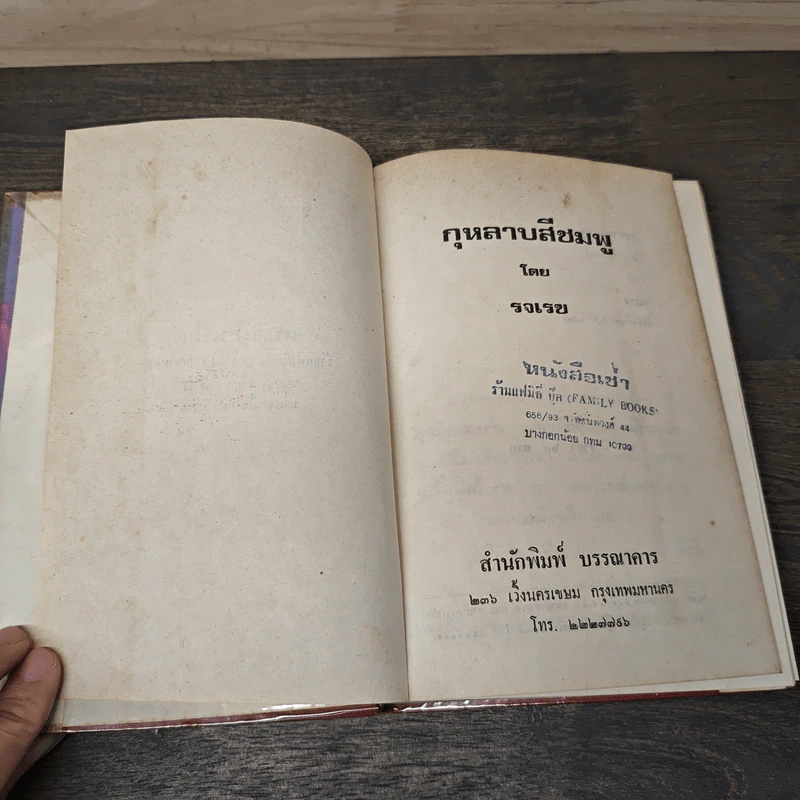 กุหลาบสีชมพู
โดย
รจเรข
หนังสือเช่า
ร้านแฟมิลี่ บุ๊ค (FAMILY BOOKS)
656/93 จ.รัลสนิทวงศ์ 44
บางกอกน้อย กทม 10700
สำนักพิมพ์ บรรณาคาร
๒๓๖ เวิ้งนครเขษม กรุงเทพมหานคร
โทร. ๒๒๒๗๗๙๖